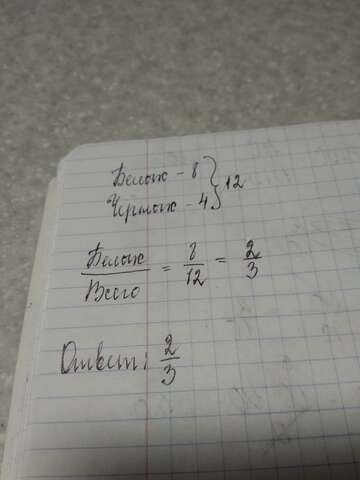 Белых - 8 } 12
Черных - 4
Белых / Всего = 8/12 = 2/3
Ответ: 2/3